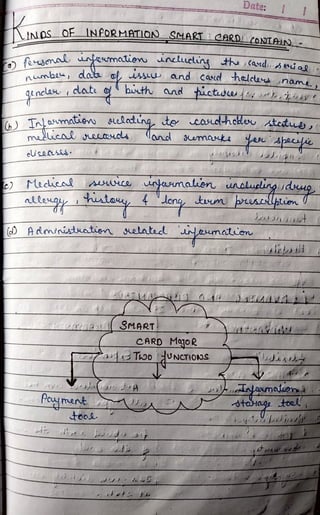 Date:
KINDS OF INFORMATION SMART CARD CONTAIN -
(a) Personal information including the card serial
number, date of issue and card holders name,
gender, date of birth and picture
(b) Information relating to cardholder status,
medical records and remarks for specific
diseases.
(c) Medical service information including drug
allergy, history & long term prescription
(d) Administration related information
SMART
CARD MAJOR
TWO FUNCTIONS
Payment
tool
Information
storage tool